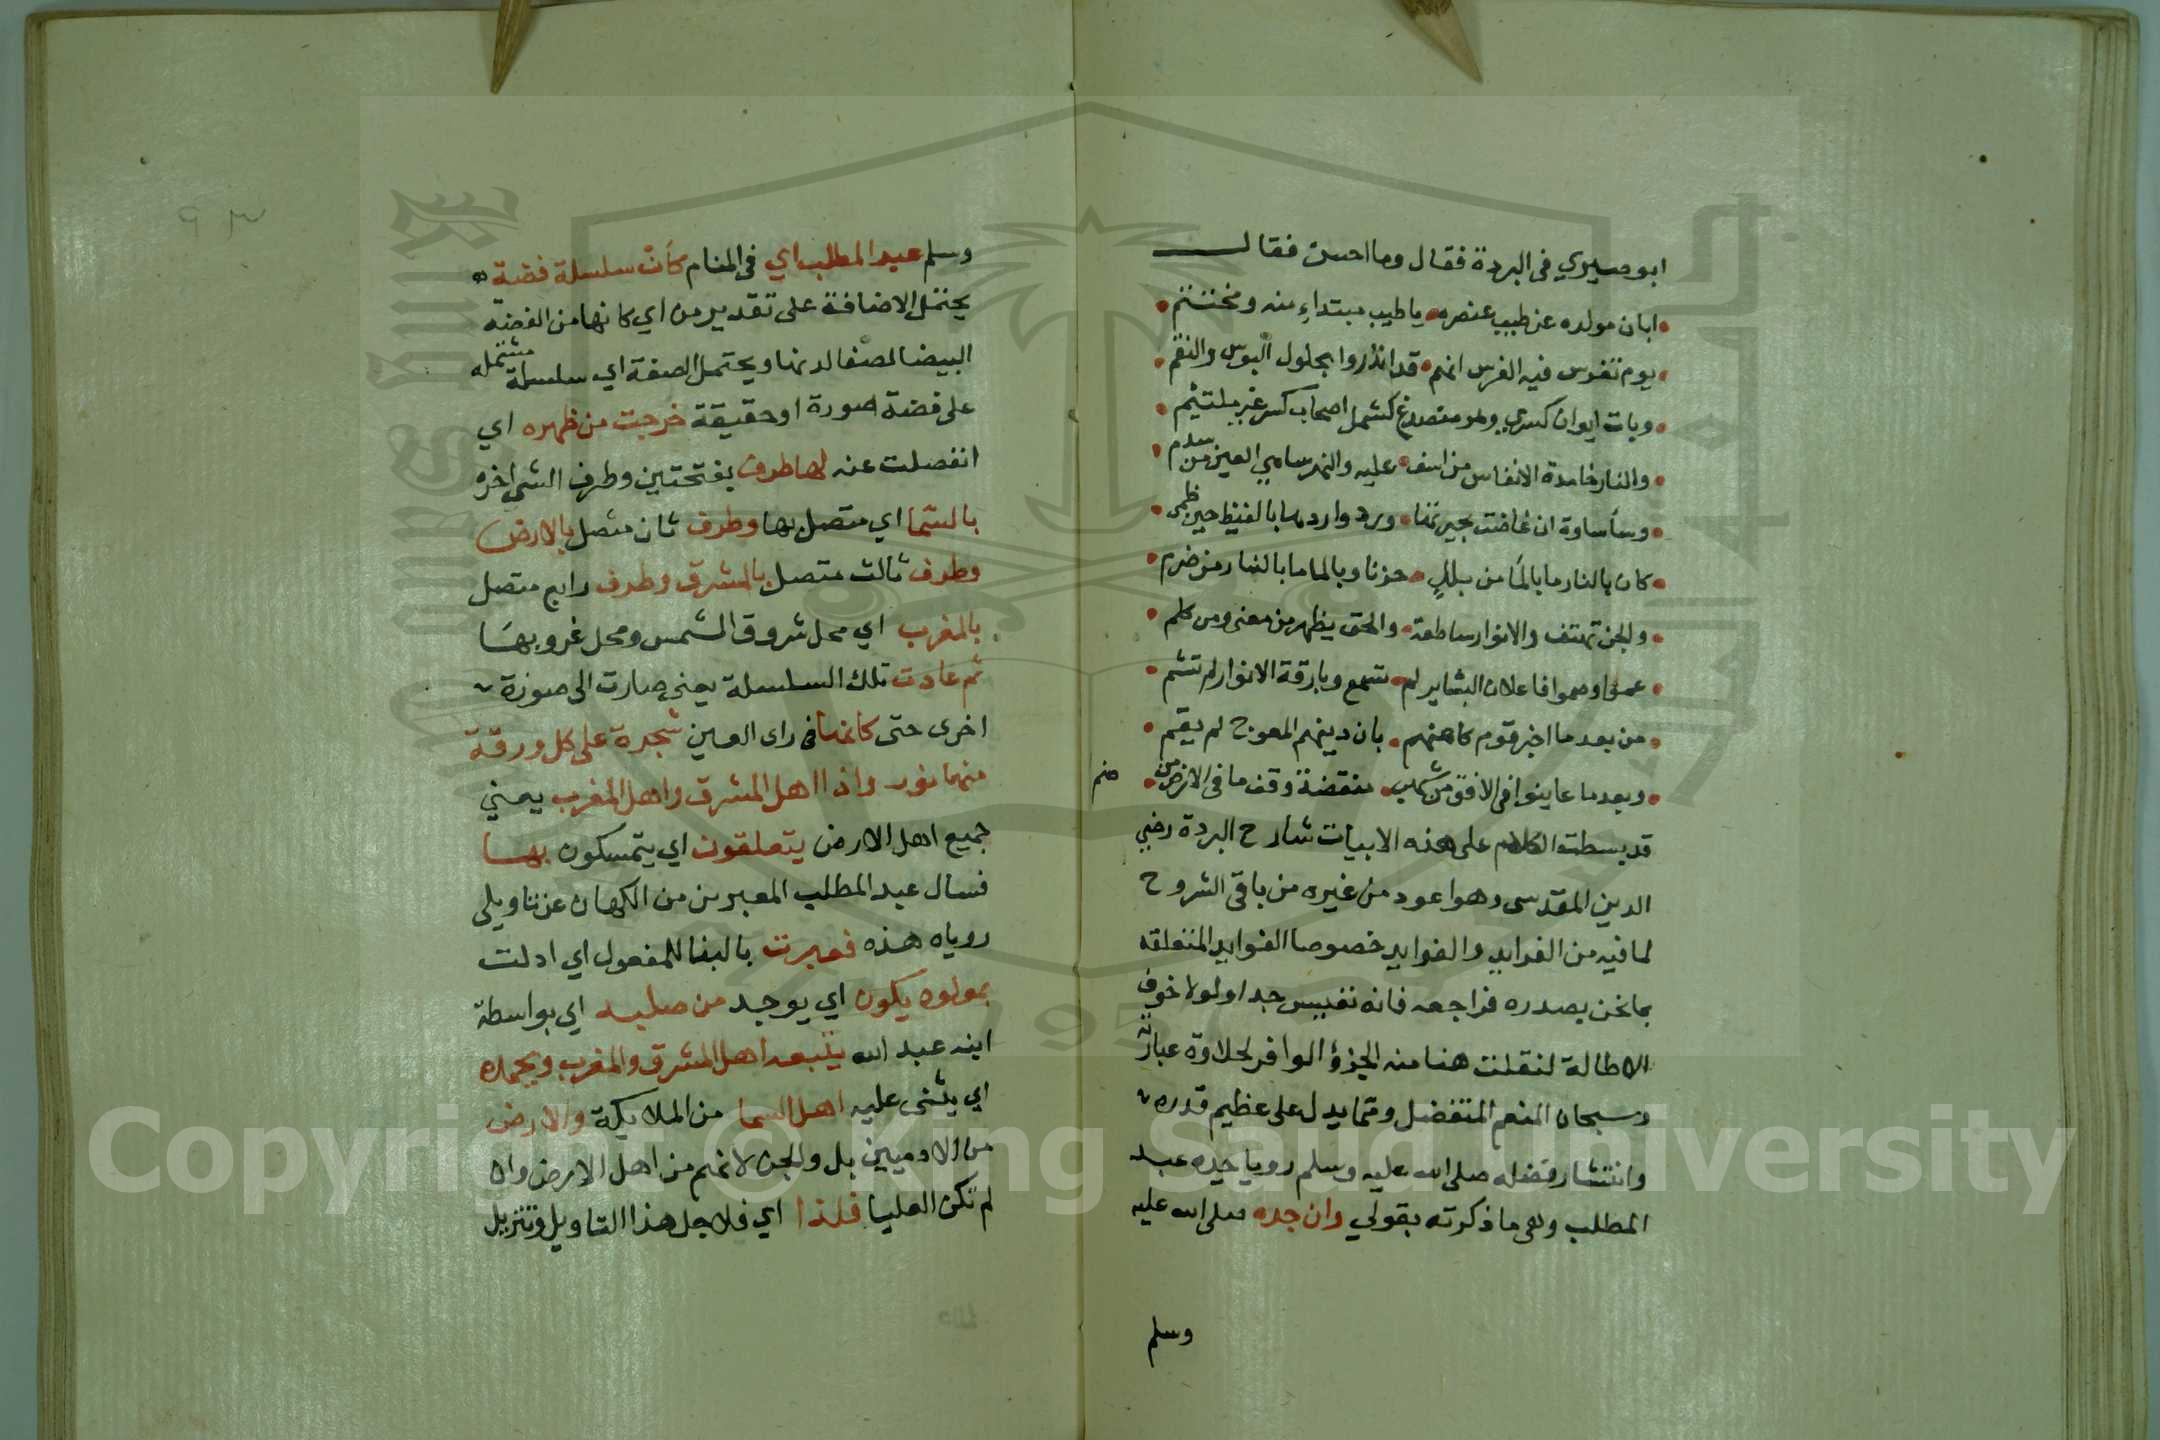 ابوصيري في البردة فقال وما احسن فقال
ابان مولده عن طيب عنصره يا طيب مبتداء منه ومختتم
يوم تفرس فيه الفرس انهم قد انذروا بحلول البوس والنقم
وبات ايوان كسري وهو متصدع كشمل اصحاب كسر غير ملتيم
والنار خامدة الانفاس من اسف عليه والنهر ساهي العين من سدم
وسآ ساوة ان غاضت بحيرتها ورد واردها بالغيظ حين ظمى
كان بالنار ما بالمآ من بلل حزنا وبالما ما بالنار من ضرم
والجن تهتف والانوار ساطعة والحق يظهر من معنى ومن كلم
عموا وصموا فاعلان البشاير لم تسمع وبارقة الانوار لم تشم
من بعد ما اخبر قوم كاهنهم بان دينهم المعوج لم يقم
وبعد ما عاينوا في الافق من شهب منقضة وفق ما في الارض من
صنم
قد بسطت الكلام على هذه الابيات شارح البردة رضي
الدين المقدسي وهو اعود من غيره من باقي الشروح
لما فيه من الفرايد والفوايد خصوصا الفوايد المتعلقه
بما نحن بصدره فراجعه فانه نفيس جدا ولولا خوف
الاطالة لنقلت هنا منه الجزؤ الوافر لحلاوة عبارته
وسبحان المنعم المتفضل ومما يدل على عظيم قدره
وانتشار فضله صلى الله عليه وسلم رويا جده عبد
المطلب وهي ما ذكرته بقولي وان جده صلى الله عليه
وسلم
٩٣
وسلم عبد المطلب اي في المنام كأن سلسلة فضة
يحتمل الاضافة على تقدير من اي كانها من الفضة
البيضا لصفا لونها ويحتمل الصفة اي سلسلة مشتمله
على فضة صورة او حقيقة خرجت من ظهره اي
انفصلت عنه لها طرف بفتحتين وطرف الشي اخره
بالسّما اي متصل بها وطرف ثان متصل بالارض
وطرف ثالث متصل بالمشرق وطرف رابع متصل
بالمغرب اي محل شروق الشمس ومحل غروبها
ثم عادت تلك السلسلة يعني صارت الى صورة
اخرى حتى كانها في راى العين شجرة على كل ورقة
منها نور واذا اهل المشرق واهل المغرب يعني
جميع اهل الارض يتعلقون اي يتمسكون بها
فسال عبد المطلب المعبرين من الكهان عن تاويلي
روياه هذه فعبرت بالبنا للمفعول اي ادلت
بمولود يكون اي يوجد من صلبه اي بواسطة
ابنه عبد الله يتبعه اهل المشرق والمغرب ويحمده
اي يثني عليه اهل السما من الملايكة والارض
من الادميين بل والجن لانهم من اهل الارض وان
لم تكن العليا فلذا اي فلاجل هذا التاويل وتنزيل